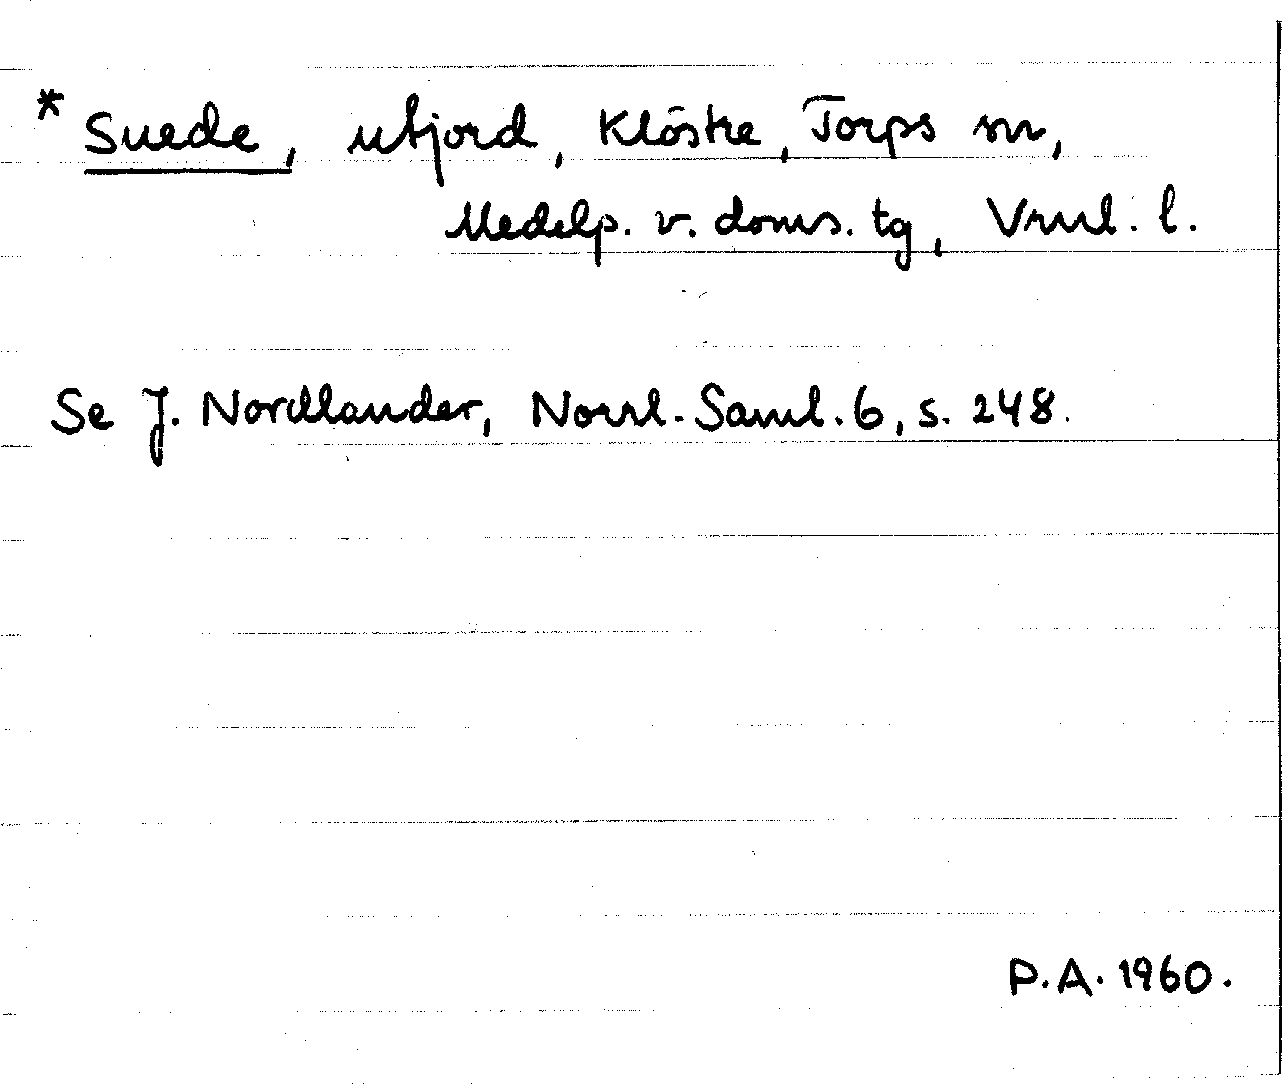 * Suede, utjord, Klöstre, Torps sn,
Medelp. v. doms. tg, Vrnl. l.
Se J. Nordlander, Norrl. Saml. 6, s. 248.
P.A. 1960.